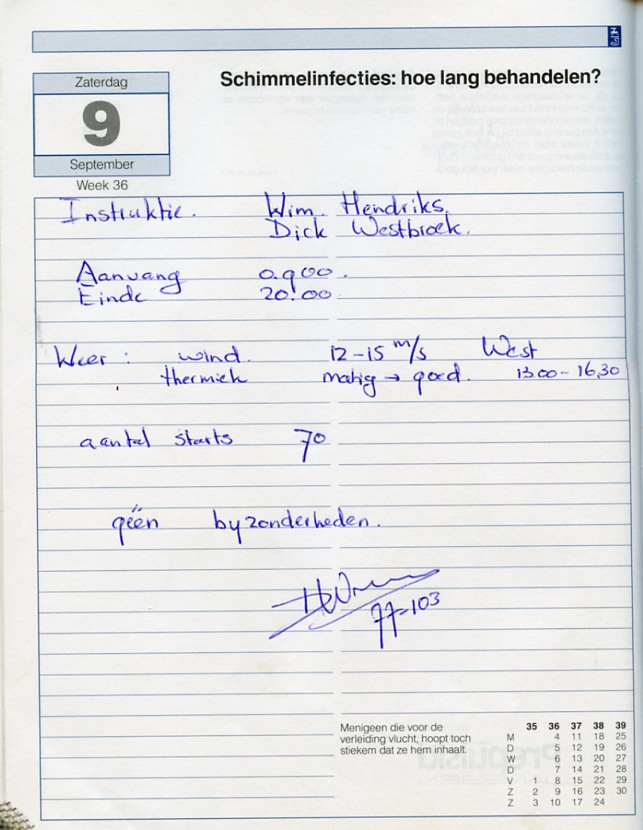 Zaterdag
9
September
Week 36
Schimmelinfecties: hoe lang behandelen?
Instruktie. Wim. Hendriks.
Dick Westbroek.
Aanvang 0.900.
Einde 20.00.
Weer: wind. 12-15 m/s West
thermiek matig → goed. 13.00-16.30
aantal starts 70
géén byzonderheden.
77-103
Menigeen die voor de
verleiding vlucht, hoopt toch
stiekem dat ze hem inhaalt.
35 36 37 38 39
M 4 11 18 25
D 5 12 19 26
W 6 13 20 27
D 7 14 21 28
V 1 8 15 22 29
Z 2 9 16 23 30
Z 3 10 17 24